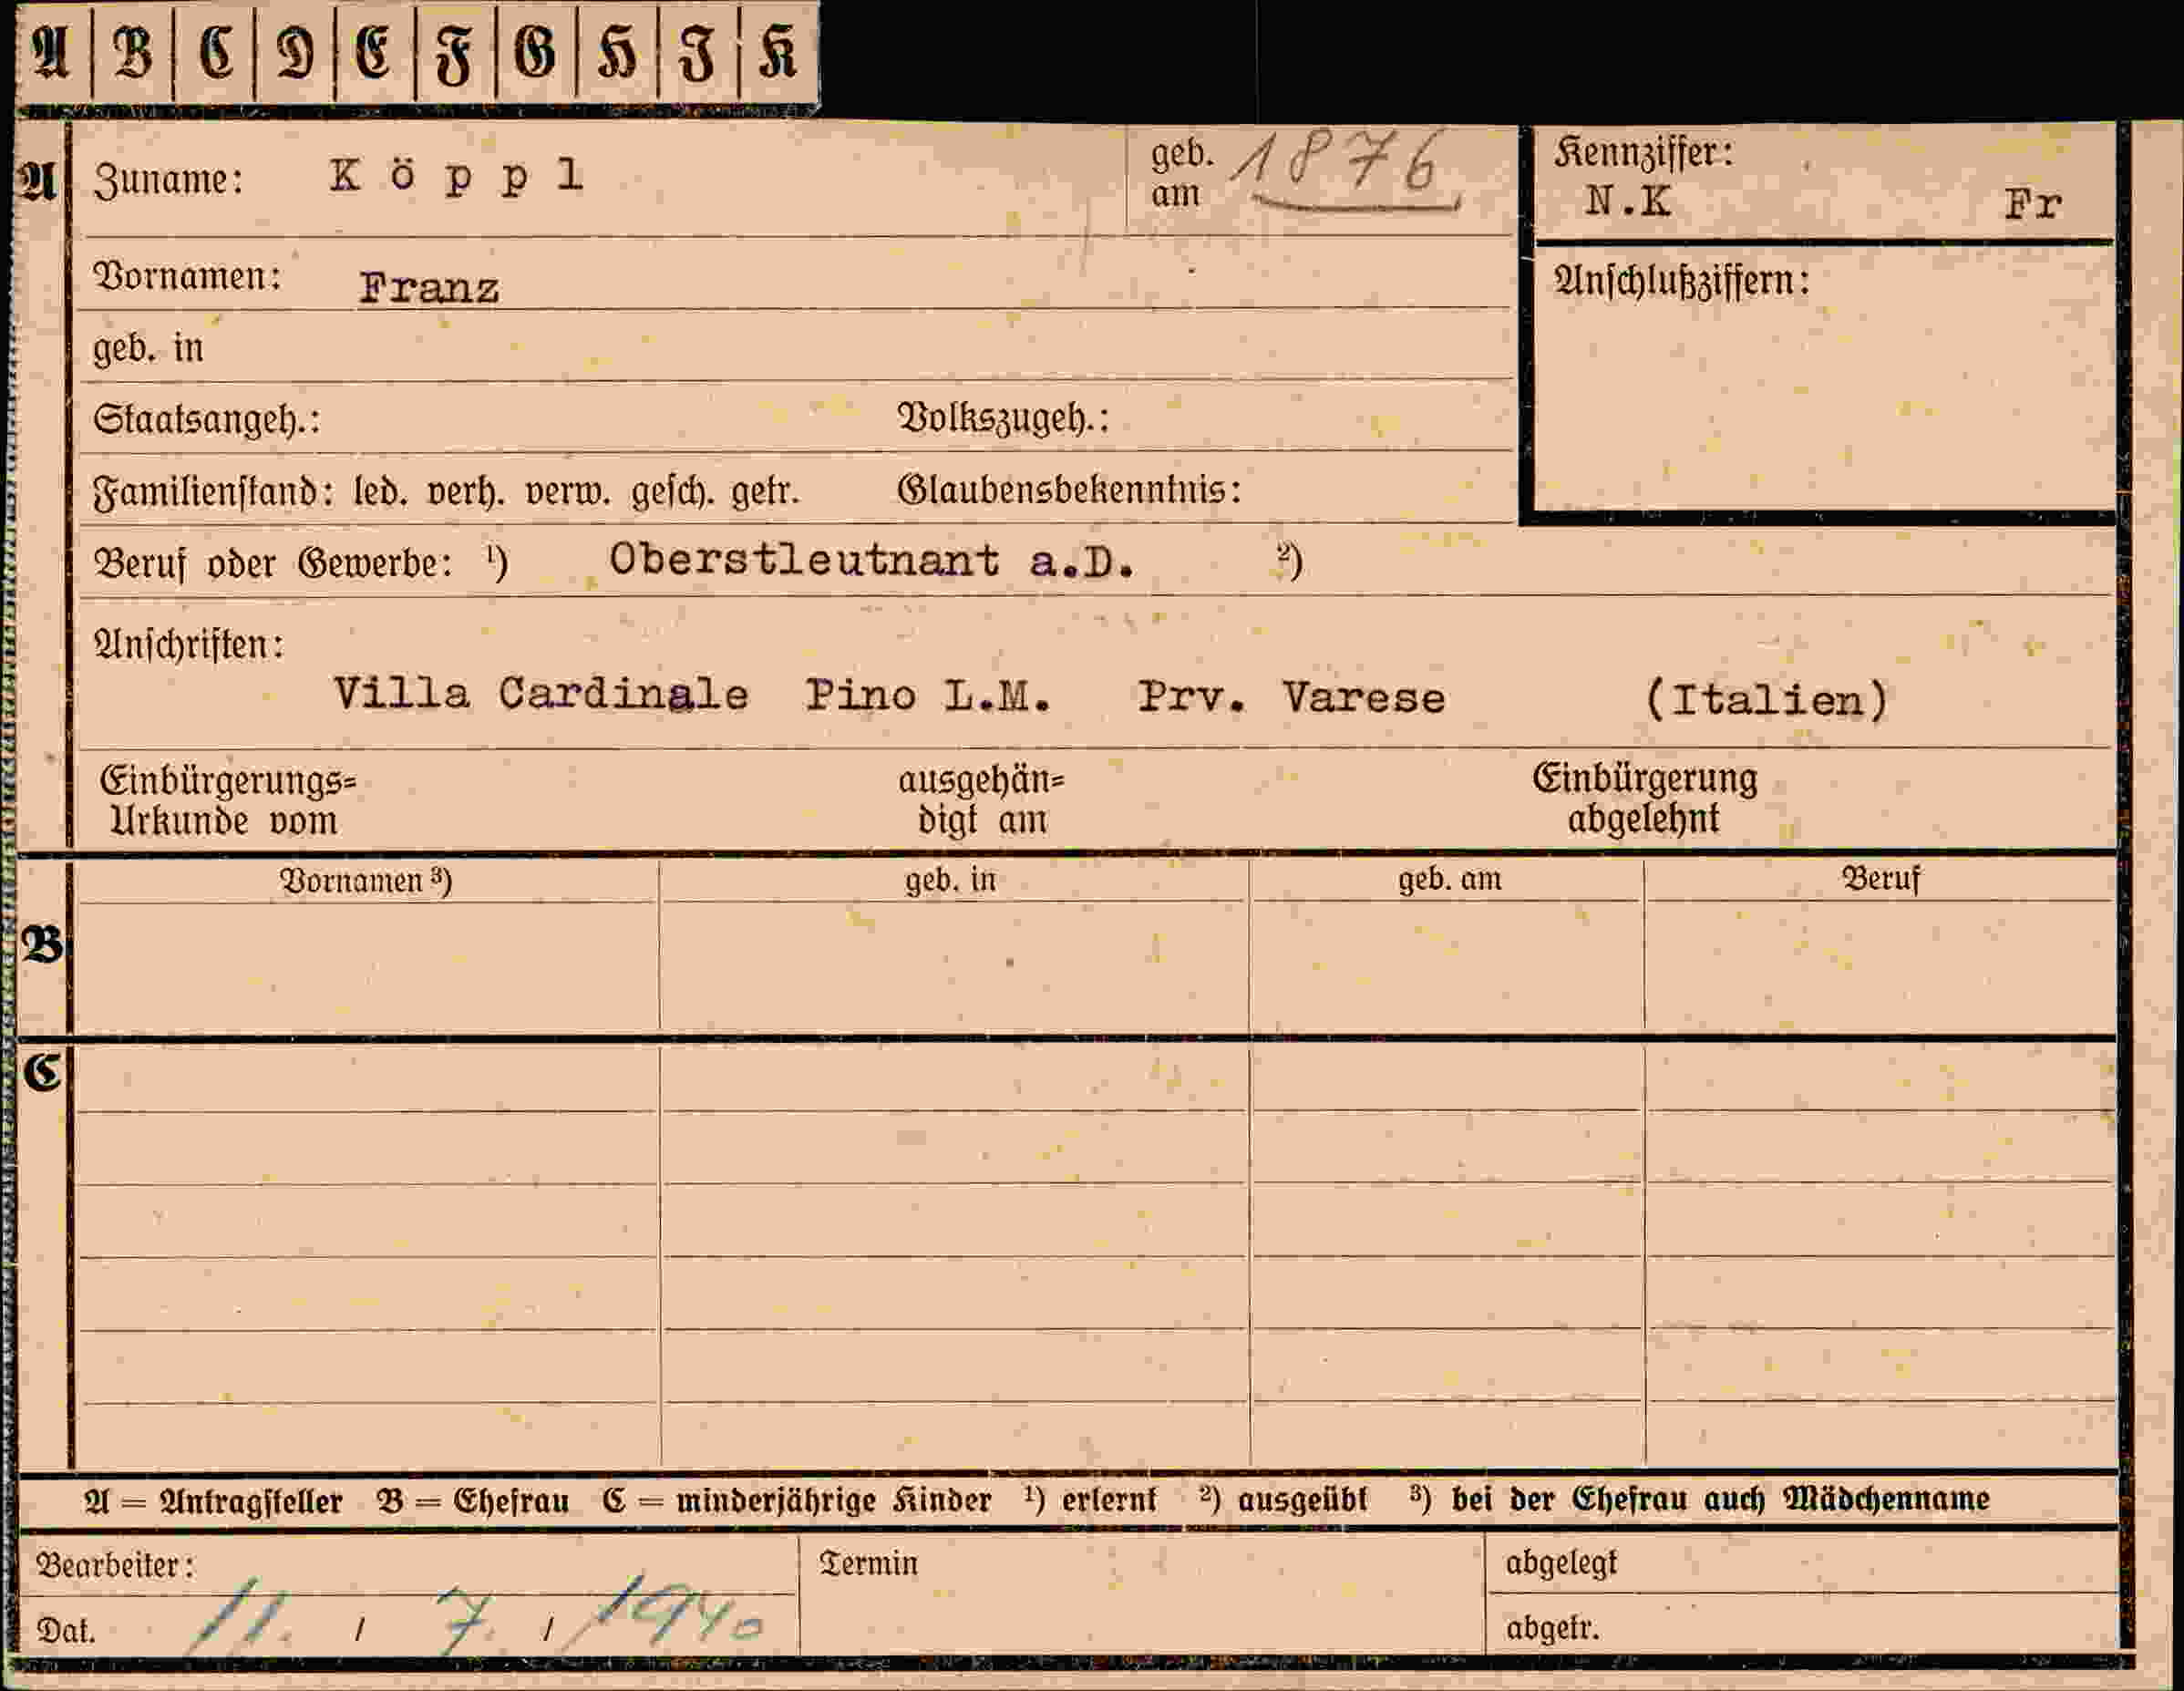 A B C D E F G H I K
A Zuname: Köppl geb. am 1876 Kennziffer: N.K Fr
Vornamen: Franz Anschlußziffern:
geb. in
Staatsangeh.: Volkszugeh.:
Familienstand: led. verh. verw. gesch. getr. Glaubensbekenntnis:
Beruf oder Gewerbe: ¹) Oberstleutnant a.D. ²)
Anschriften:
Villa Cardinale Pino L.M. Prv. Varese (Italien)
Einbürgerungs= ausgehän= Einbürgerung
Urkunde vom digt am abgelehnt
Vornamen ³) geb. in geb. am Beruf
B
C
A = Antragsteller B = Ehefrau C = minderjährige Kinder ¹) erlernt ²) ausgeübt ³) bei der Ehefrau auch Mädchenname
Bearbeiter: Termin abgelegt
Dat. 11. / 7. / 1940 abgetr.